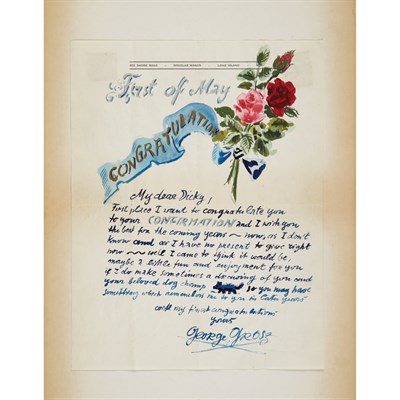 First of May
CONGRATULATION
My dear Dicky,
First place I want to congratulate you
to your CONFIRMATION and I wish you
the best for the coming years — now, as I don't
know and as I have no present to give right
now — well I came to think it would be,
maybe a little fun and enjoyment for you
if I do make sometimes a drawing of you and
your beloved dog champ so you may have
something which to you in later years
with my first congratulations
Yours
GEORGE GROSZ